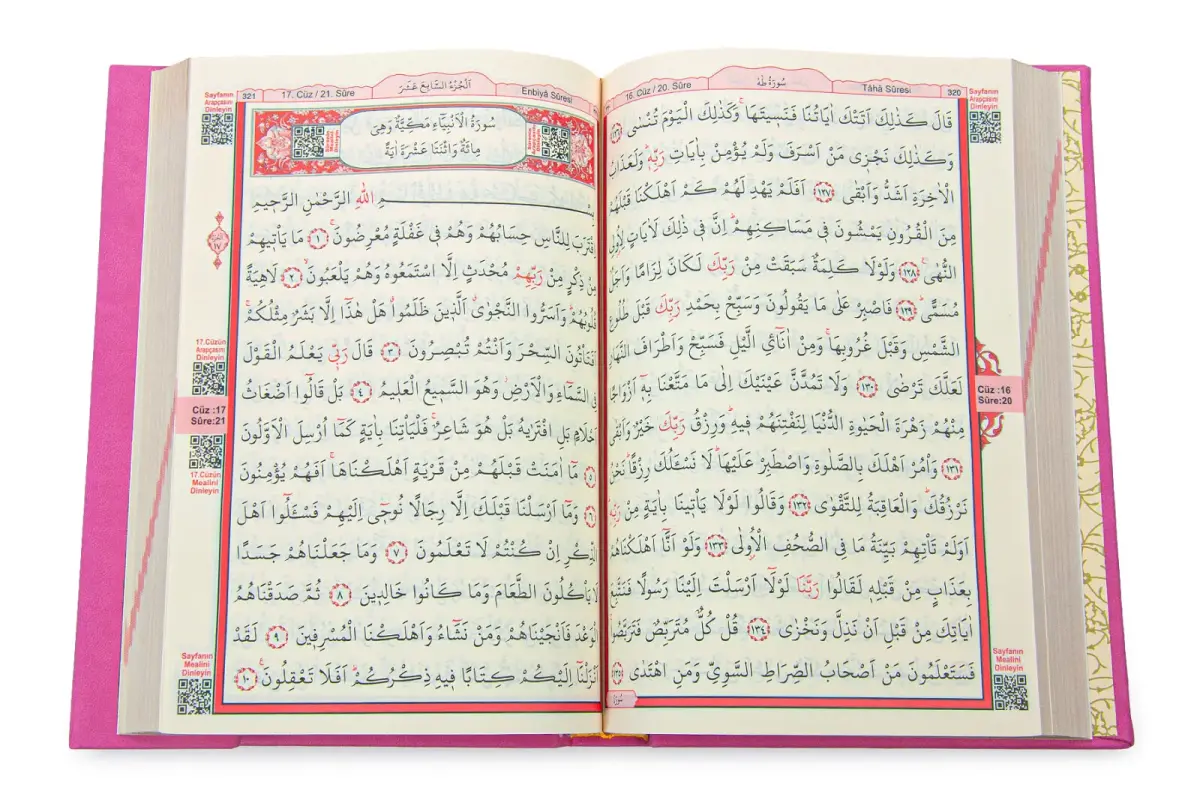 سُورَةُ طٰهٰ
16. Cüz / 20. Sûre
Tâhâ Sûresi
320
قَالَ كَذٰلِكَ اَتَتْكَ اٰيَاتُنَا فَنَسٖيتَهَاۚ وَكَذٰلِكَ الْيَوْمَ تُنْسٰى ﴿١٢٦﴾
وَكَذٰلِكَ نَجْزٖى مَنْ اَسْرَفَ وَلَمْ يُؤْمِنْ بِاٰيَاتِ رَبِّهٖؕ وَلَعَذَابُ
الْاٰخِرَةِ اَشَدُّ وَاَبْقٰى ﴿١٢٧﴾ اَفَلَمْ يَهْدِ لَهُمْ كَمْ اَهْلَكْنَا قَبْلَهُمْ
مِنَ الْقُرُونِ يَمْشُونَ فٖى مَسَاكِنِهِمْؕ اِنَّ فٖى ذٰلِكَ لَاٰيَاتٍ لِاُولِى
النُّهٰى ﴿١٢٨﴾ وَلَوْلَا كَلِمَةٌ سَبَقَتْ مِنْ رَبِّكَ لَكَانَ لِزَامًا وَاَجَلٌ
مُسَمًّى ﴿١٢٩﴾ فَاصْبِرْ عَلٰى مَا يَقُولُونَ وَسَبِّحْ بِحَمْدِ رَبِّكَ قَبْلَ طُلُوعِ
الشَّمْسِ وَقَبْلَ غُرُوبِهَاۚ وَمِنْ اٰنَآئِ الَّيْلِ فَسَبِّحْ وَاَطْرَافَ النَّهَارِ
لَعَلَّكَ تَرْضٰى ﴿١٣٠﴾ وَلَا تَمُدَّنَّ عَيْنَيْكَ اِلٰى مَا مَتَّعْنَا بِهٖٓ اَزْوَاجًا
مِنْهُمْ زَهْرَةَ الْحَيٰوةِ الدُّنْيَا لِنَفْتِنَهُمْ فٖيهِؕ وَرِزْقُ رَبِّكَ خَيْرٌ وَاَبْقٰى
﴿١٣١﴾ وَاْمُرْ اَهْلَكَ بِالصَّلٰوةِ وَاصْطَبِرْ عَلَيْهَاؕ لَا نَسْئَلُكَ رِزْقًاؕ نَحْنُ
نَرْزُقُكَؕ وَالْعَاقِبَةُ لِلتَّقْوٰى ﴿١٣٢﴾ وَقَالُوا لَوْلَا يَاْتٖينَا بِاٰيَةٍ مِنْ رَبِّهٖؕ
اَوَلَمْ تَاْتِهِمْ بَيِّنَةُ مَا فِى الصُّحُفِ الْاُولٰى ﴿١٣٣﴾ وَلَوْ اَنَّٓا اَهْلَكْنَاهُمْ
بِعَذَابٍ مِنْ قَبْلِهٖ لَقَالُوا رَبَّنَا لَوْلَٓا اَرْسَلْتَ اِلَيْنَا رَسُولًا فَنَتَّبِعَ
اٰيَاتِكَ مِنْ قَبْلِ اَنْ نَذِلَّ وَنَخْزٰى ﴿١٣٤﴾ قُلْ كُلٌّ مُتَرَبِّصٌ فَتَرَبَّصُواۚ
فَسَتَعْلَمُونَ مَنْ اَصْحَابُ الصِّرَاطِ السَّوِىِّ وَمَنِ اهْتَدٰى ﴿١٣٥﴾
Sayfanın
Arapçasını
Dinleyin
Cüz :16
Sûre:20
Sayfanın
Mealini
Dinleyin
321
17. Cüz / 21. Sûre
اَلْجُزْءُ السَّابِعَ عَشَرَ
Enbiyâ Sûresi
سُورَةُ الْاَنْبِيَٓاءِ مَكِّيَّةٌ وَهِىَ
مِائَةٌ وَاثْنَتَا عَشْرَةَ اٰيَةً
بِسْمِ اللّٰهِ الرَّحْمٰنِ الرَّحٖيمِ
اِقْتَرَبَ لِلنَّاسِ حِسَابُهُمْ وَهُمْ فٖى غَفْلَةٍ مُعْرِضُونَۚ ﴿١﴾ مَا يَاْتٖيهِمْ
مِنْ ذِكْرٍ مِنْ رَبِّهِمْ مُحْدَثٍ اِلَّا اسْتَمَعُوهُ وَهُمْ يَلْعَبُونَۙ ﴿٢﴾ لَاهِيَةً
قُلُوبُهُمْؕ وَاَسَرُّوا النَّجْوٰىۗ اَلَّذٖينَ ظَلَمُواۗ هَلْ هٰذَٓا اِلَّا بَشَرٌ مِثْلُكُمْۚ
اَفَتَاْتُونَ السِّحْرَ وَاَنْتُمْ تُبْصِرُونَ ﴿٣﴾ قَالَ رَبّٖى يَعْلَمُ الْقَوْلَ
فِى السَّمَٓاءِ وَالْاَرْضِؗ وَهُوَ السَّمٖيعُ الْعَلٖيمُ ﴿٤﴾ بَلْ قَالُٓوا اَضْغَاثُ
اَحْلَامٍ بَلِ افْتَرٰيهُ بَلْ هُوَ شَاعِرٌۚ فَلْيَاْتِنَا بِاٰيَةٍ كَمَٓا اُرْسِلَ الْاَوَّلُونَ
﴿٥﴾ مَٓا اٰمَنَتْ قَبْلَهُمْ مِنْ قَرْيَةٍ اَهْلَكْنَاهَاۚ اَفَهُمْ يُؤْمِنُونَ
﴿٦﴾ وَمَٓا اَرْسَلْنَا قَبْلَكَ اِلَّا رِجَالًا نُوحٖٓى اِلَيْهِمْ فَسْئَلُٓوا اَهْلَ
الذِّكْرِ اِنْ كُنْتُمْ لَا تَعْلَمُونَ ﴿٧﴾ وَمَا جَعَلْنَاهُمْ جَسَدًا
لَا يَاْكُلُونَ الطَّعَامَ وَمَا كَانُوا خَالِدٖينَ ﴿٨﴾ ثُمَّ صَدَقْنَاهُمُ
الْوَعْدَ فَاَنْجَيْنَاهُمْ وَمَنْ نَشَٓاءُ وَاَهْلَكْنَا الْمُسْرِفٖينَ ﴿٩﴾ لَقَدْ
اَنْزَلْنَٓا اِلَيْكُمْ كِتَابًا فٖيهِ ذِكْرُكُمْؕ اَفَلَا تَعْقِلُونَۚ ﴿١٠﴾
Sayfanın
Arapçasını
Dinleyin
17.Cüzün
Arapçasını
Dinleyin
Cüz :17
Sûre:21
17.Cüzün
Mealini
Dinleyin
Sayfanın
Mealini
Dinleyin